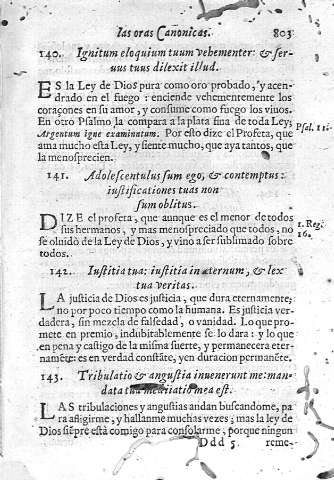 las oras Canonicas. 803
140. Ignitum eloquium tuum vehementer: & ser-
uus tuus dilexit illud.
ES la Ley de Dios pura como oro probado, y acen-
drado en el fuego: enciende vehementemente los
coraçones en su amor, y consume como fuego los vinos.
En otro Psalmo la compara a la plata fina de toda Ley;
Argentum igne examinatum. Por esto dize el Profeta, que
Psal. 11.
ama mucho esta Ley, y siente mucho, que aya tantos, que
la menosprecien.
141. Adolescentulus sum ego, & contemptus:
iustificationes tuas non
sum oblitus.
DIZE el profeta, que aunque es el menor de todos
sus hermanos, y mas menospreciado que todos, no
1. Reg.
16.
se olvidò de la Ley de Dios, y vino a ser sublimado sobre
todos.
142. Iustitia tua: iustitia in æternum, & lex
tua veritas.
LA justicia de Dios es justicia, que dura eternamente;
no por poco tiempo como la humana. Es justicia ver-
dadera, sin mezcla de falsedad, o vanidad. Lo que pro-
mete en premio, indubitablemente se lo dara: y lo que
en pena y castigo de la misma suerte, y permanecera eter-
namẽte: es en verdad constãte, y en duracion permanẽte.
143. Tribulatio & angustia inuenerunt me: man-
data tua meditatio mea est.
LAS tribulaciones y angustias andan buscandome, pa
ra afligirme, y hallanme muchas vezes; mas la ley de
Dios siẽpre està comigo para consolarme, porque ningun
Ddd 5 reme-